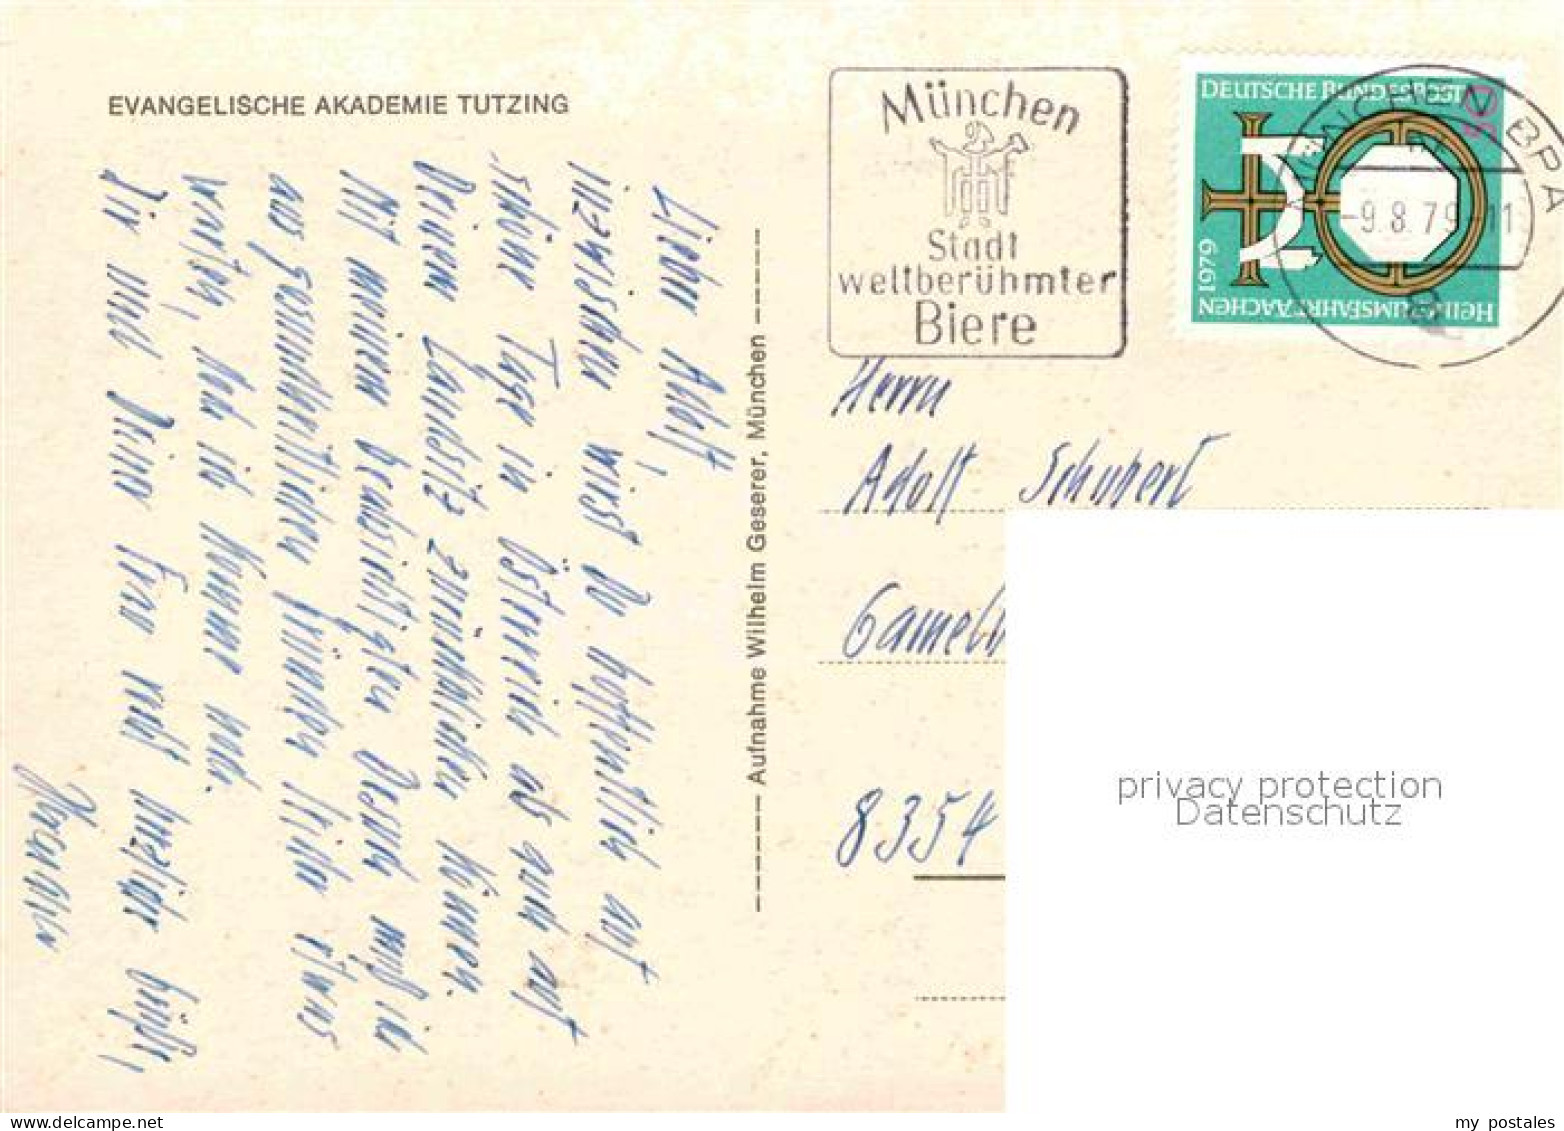 EVANGELISCHE AKADEMIE TUTZING
Lieber Adolf,
inzwischen wirst Du hoffentlich auf
schöne Tage in Österreich als auch auf
Deinem Landsitz zurückblicken können.
Mit meinem beabsichtigten Besuch muß ich
aus gesundheitlichen Gründen leider etwas
warten, doch ich komme noch.
Dir und Deiner Frau recht herzliche Grüße,
Aufnahme Wilhelm Geserer, München
München
Stadt
weltberühmter
Biere
DEUTSCHE BUNDESPOST
50
1979
HEILIGTUMSFAHRT AACHEN
MÜNCHEN BPA
-9.8.79-11
Herrn
Adolf Schubert
8354
privacy protection
Datenschutz
my postales